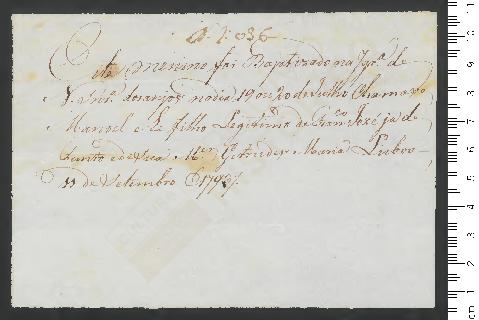 N. 1:036
Este menino foi Baptizado na Igrª de
N. Snrª dos anjos no dia 19 ou 20 de Julho Chamaxe
Manoel e he filho Legitimo de Franco Jozé ja de
funto e de sua Mer Getrudes Maria Lisboa
11 de Setembro de